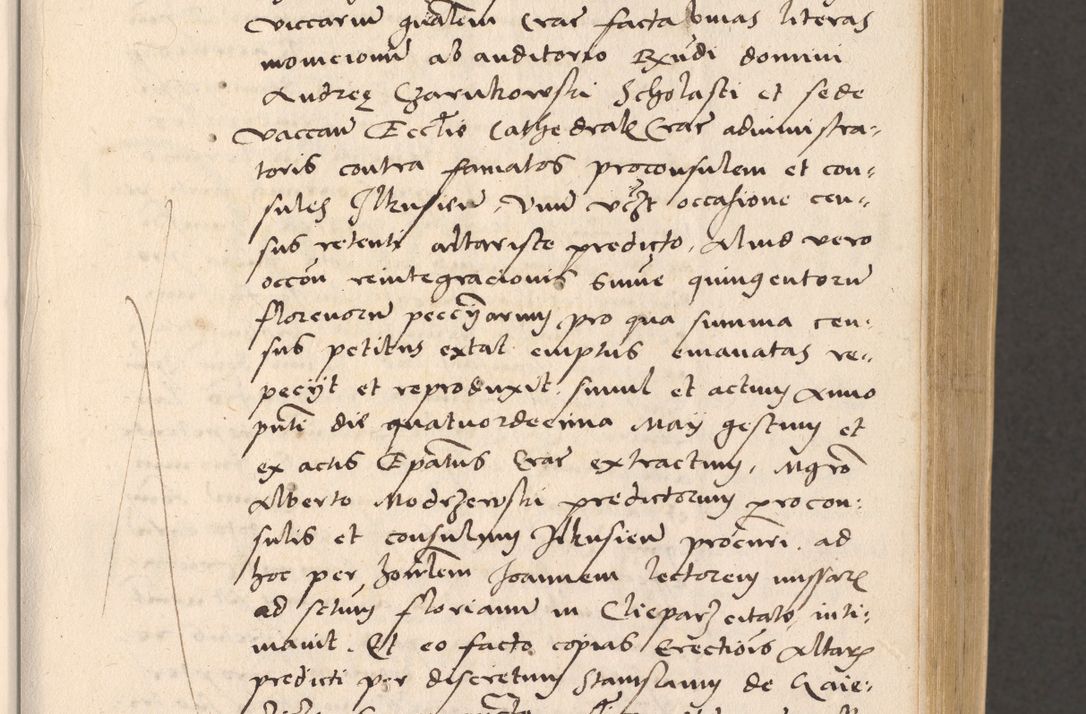 viccarium gñalem Crac̃ facta binas literas
monicionũ ab auditorio Rx̃ndi domini
Andreę Czarnkowski Scholasti et sede
vaccañ Ecclie Cathedral Crac̃ administra-
toris contra famatos proconsulem et con-
sules Ilkusieñ, Vnũ vcꝫt occasione cen-
sus retenti altariste predicto, Aliud vero
occõn reintegracionis summe quingentorũ
florenorũ pecc̃iarum pro qua summa cen-
sus petitus extat emptus emanatas re-
pecijt et reproduxit, simul et actum Anno
pñte die quatuordecima Maij gestum et
ex actis Epãtus Crac̃ extractum, Mgrõ
Alberto Modrzewski predictorum procon-
sulis et consulum Ilkusieñ procũri, ad
hoc per honõlem Joannem lectorem missarũ
ad sctum florianũ in Cleparz citato, inti-
mauit. Et eo facto copias Erectiõis Altarꝫ
predicti per discretum Stanislaum de